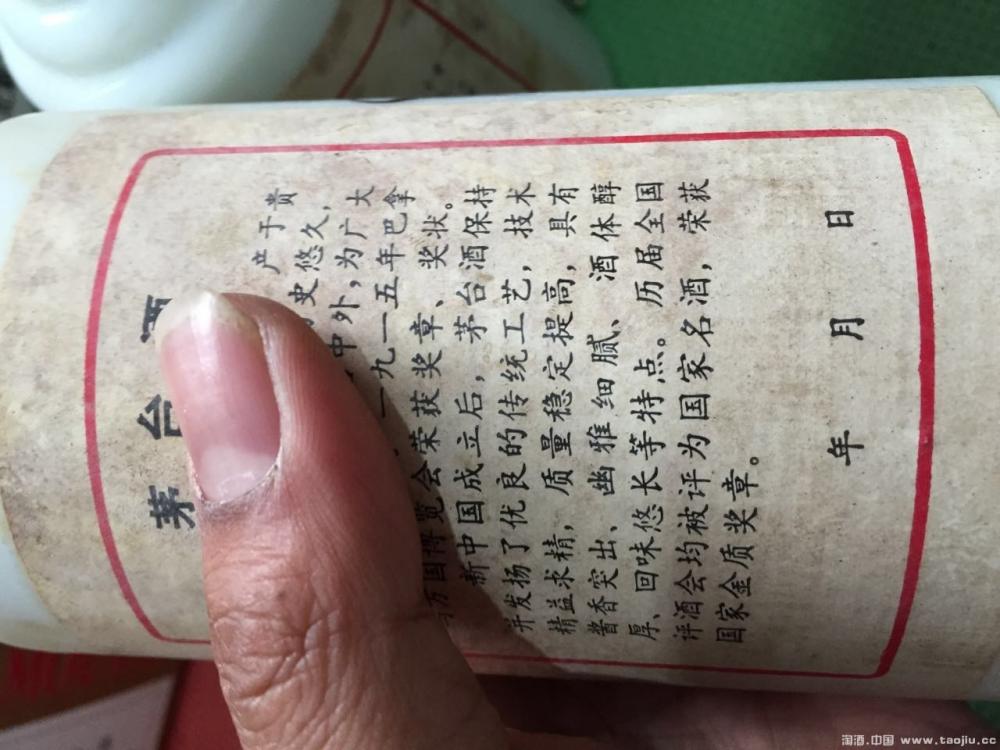 茅台酒
产于贵
史悠久，
中外，为广大
一九一五年巴拿
万国博览会荣获奖章、奖状。
新中国成立后，茅台酒保持
并发扬了优良的传统工艺，技术
精益求精，质量稳定提高，具有
酱香突出、幽雅细腻、酒体醇
厚、回味悠长等特点。历届全国
评酒会均被评为国家名酒，荣获
国家金质奖章。
年 月 日
淘酒.中国 www.taojiu.cc